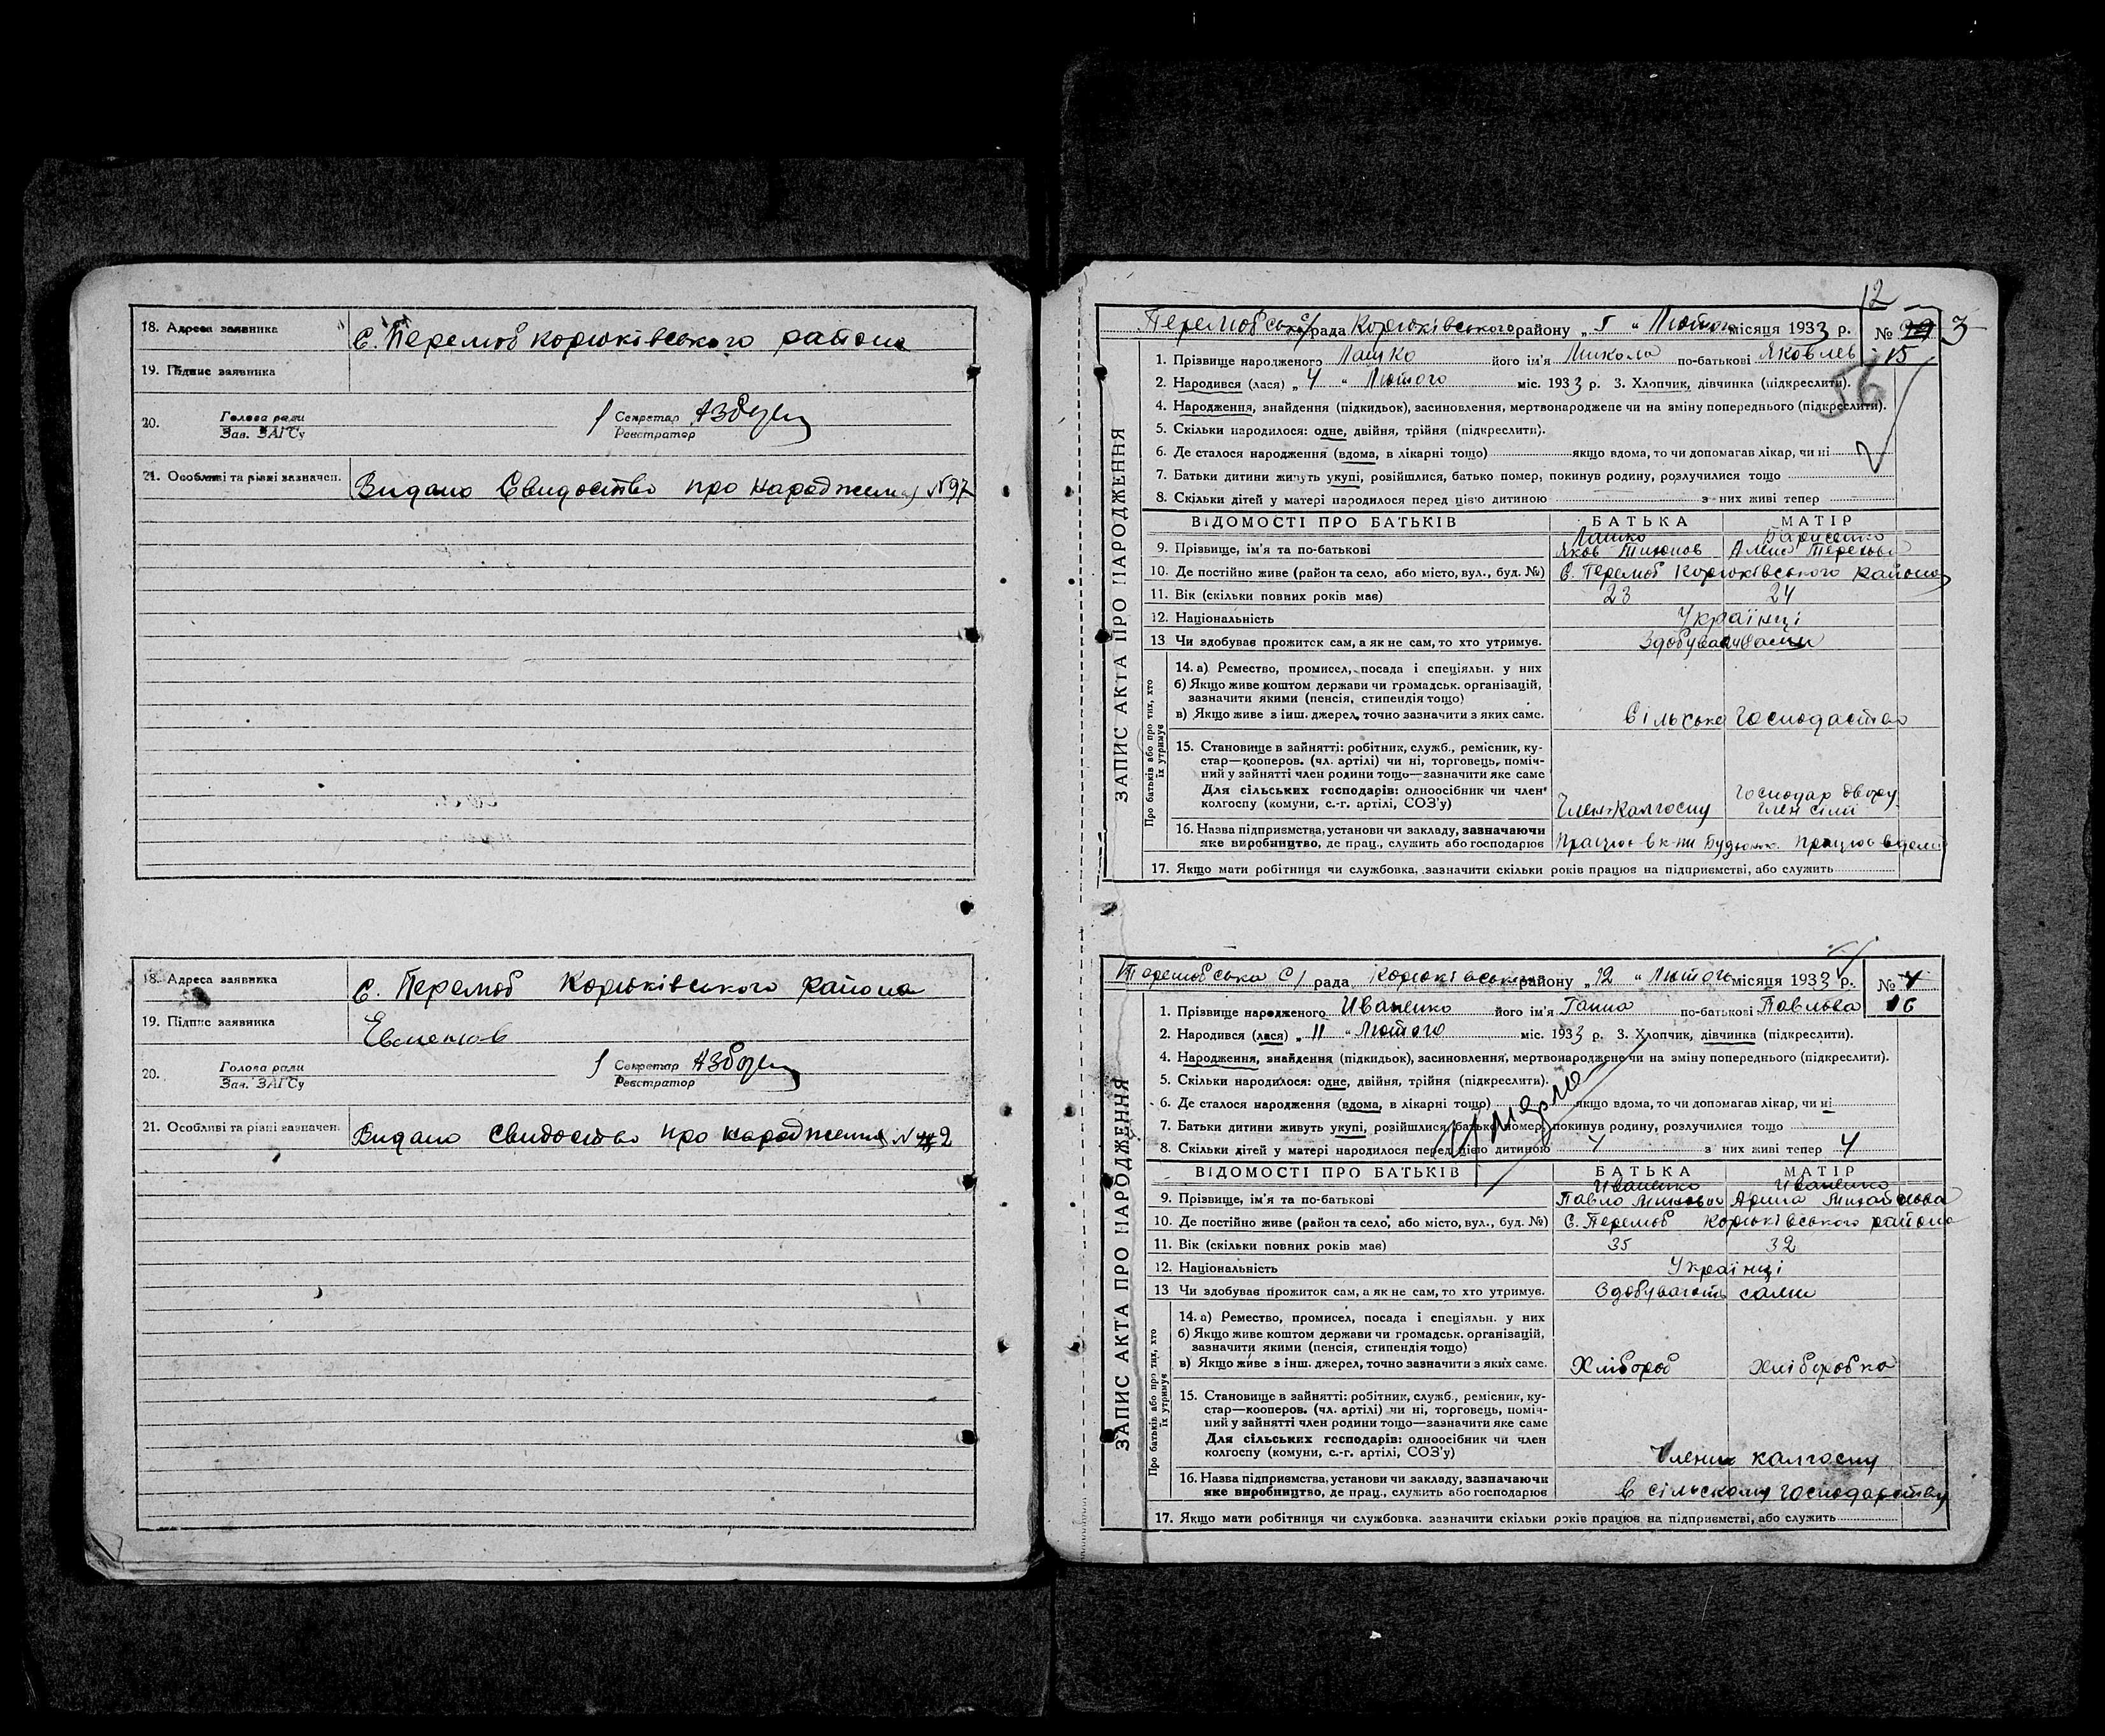 18. Адреса заявника С. Перелюб Корюківського района
19. Підпис заявника
20. Голова ради
Зав. ЗАГСу
Секретар
Реєстратор
21. Особливі та різні зазначен. Видано Свидоство про народження №97
18. Адреса заявника С. Перелюб Корюківського района
19. Підпис заявника
20. Голова ради
Зав. ЗАГСу
Секретар
Реєстратор
21. Особливі та різні зазначен. Видано свидоство про народження № 2
12
Перелюбська с/рада Корюківського району „5“ Лютого місяця 1933 р. № 3
15
1. Прізвище народженого Лашко його ім'я Микола по-батькові Яковлев
2. Народився (лася) „4“ Лютого міс. 1933 р. 3. Хлопчик, дівчинка (підкреслити).
56
4. Народження, знайдення (підкидьок), засиновлення, мертвонароджене чи на зміну попереднього (підкреслити).
5. Скільки народилося: одне, двійня, трійня (підкреслити).
6. Де сталося народження (вдома, в лікарні тощо) якщо вдома, то чи допомагав лікар, чи ні
7. Батьки дитини живуть укупі, розійшлися, батько помер, покинув родину, розлучилися тощо
8. Скільки дітей у матері народилося перед цією дитиною з них живі тепер
ЗАПИС АКТА ПРО НАРОДЖЕННЯ
ВІДОМОСТІ ПРО БАТЬКІВ БАТЬКА МАТІР
Лашко
9. Прізвище, ім'я та по-батькові Яков
10. Де постійно живе (район та село, або місто, вул., буд. №) С. Перелюб Корюківського района
11. Вік (скільки повних років має) 23 24
12. Національність Українці
13 Чи здобуває прожиток сам, а як не сам, то хто утримує.
Про батьків або про тих, хто їх утримує
14. а) Ремество, промисел, посада і спеціяльн. у них
б) Якщо живе коштом держави чи громадськ. організацій,
зазначити якими (пенсія, стипендія тощо)
в) Якщо живе з інш. джерел, точно зазначити з яких саме. Сільське Господаство
15. Становище в зайнятті: робітник, служб., ремісник, ку-
стар—кооперов. (чл. артілі) чи ні, торговець, поміч-
ний у зайнятті член родини тощо—зазначити яке саме
Для сільських господарів: одноосібник чи член
колгоспу (комуни, с.-г. артілі, СОЗ'у) Член калгоспу Господар двору
16. Назва підприємства, установи чи закладу, зазначаючи
яке виробництво, де прац., служить або господарює
17. Якщо мати робітниця чи службовка, зазначити скільки років працює на підприємстві, або служить
Перелюбська с/ рада Корюківського району „12“ Лютого місяця 1933 р. № 4
16
1. Прізвище народженого Иваненко його ім'я Ганна по-батькові Павлова
2. Народився (лася) „11“ Лютого міс. 1933 р. 3. Хлопчик, дівчинка (підкреслити).
4. Народження, знайдення (підкидьок), засиновлення, мертвонароджене чи на зміну попереднього (підкреслити).
5. Скільки народилося: одне, двійня, трійня (підкреслити).
6. Де сталося народження (вдома, в лікарні тощо) якщо вдома, то чи допомагав лікар, чи ні
7. Батьки дитини живуть укупі, розійшлися, батько помер, покинув родину, розлучилися тощо
8. Скільки дітей у матері народилося перед цією дитиною 4 з них живі тепер 4
ЗАПИС АКТА ПРО НАРОДЖЕННЯ
ВІДОМОСТІ ПРО БАТЬКІВ БАТЬКА МАТІР
Иваненко Иваненко
9. Прізвище, ім'я та по-батькові Павло Арина Михайлова
10. Де постійно живе (район та село, або місто, вул., буд. №) С. Перелюб Корюківського района
11. Вік (скільки повних років має) 35 32
12. Національність Українці
13 Чи здобуває прожиток сам, а як не сам, то хто утримує. Здобувають сами
Про батьків або про тих, хто їх утримує
14. а) Ремество, промисел, посада і спеціяльн. у них
б) Якщо живе коштом держави чи громадськ. організацій,
зазначити якими (пенсія, стипендія тощо)
в) Якщо живе з інш. джерел, точно зазначити з яких саме. Хлібороб Хліборобка
15. Становище в зайнятті: робітник, служб., ремісник, ку-
стар—кооперов. (чл. артілі) чи ні, торговець, поміч-
ний у зайнятті член родини тощо—зазначити яке саме
Для сільських господарів: одноосібник чи член
колгоспу (комуни, с.-г. артілі, СОЗ'у) Члени калгоспу
16. Назва підприємства, установи чи закладу, зазначаючи
яке виробництво, де прац., служить або господарює В сільскому господарству
17. Якщо мати робітниця чи службовка, зазначити скільки років працює на підприємстві, або служить